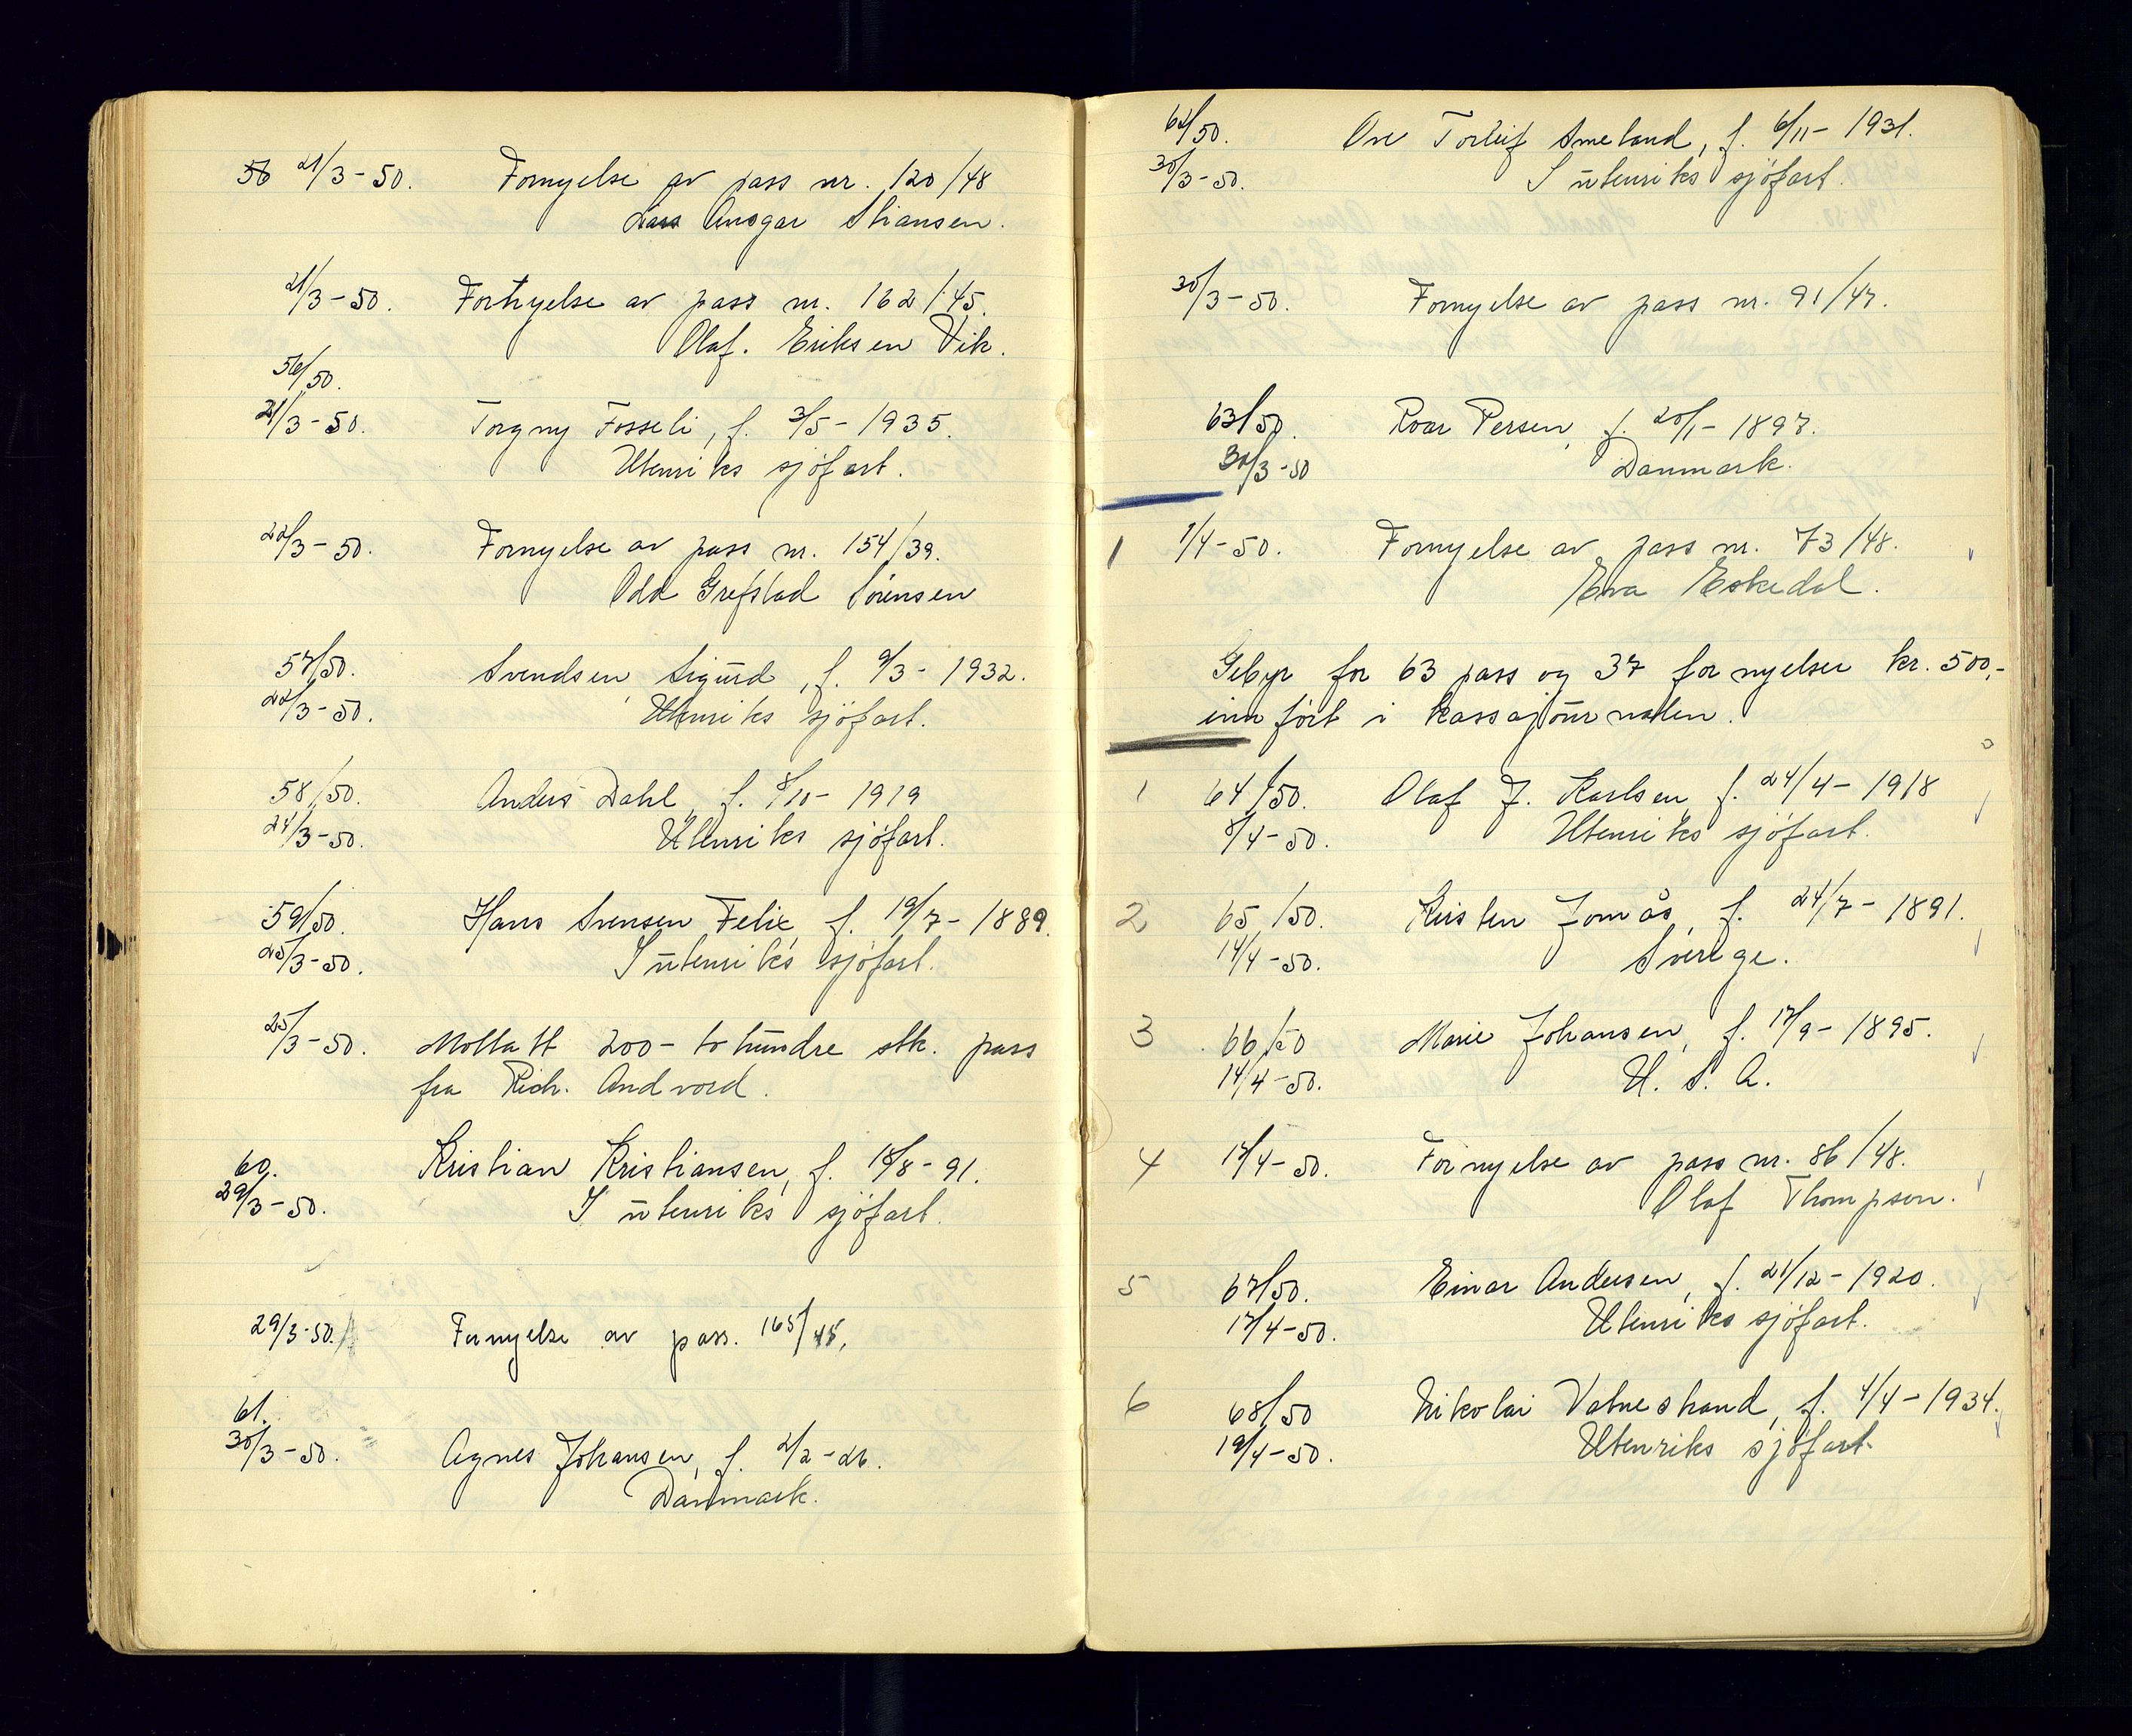 56 21/3-50. Fornyelse av pass nr. 120/48
Lars Ansgar Stiansen.
21/3-50. Fornyelse av pass nr. 162/45.
Olaf. Eriksen Vik.
56/50.
21/3-50. Torgny Fosseli, f. 3/5-1935.
Utenriks sjöfart.
22/3-50. Fornyelse av pass nr. 154/39.
Odd Grefstad Sörensen
57/50. Svendsen Sigurd, f. 9/3-1932.
22/3-50. Utenriks sjöfart.
58/50. Anders Dahl, f. 8/10-1919
24/3-50. Utenriks sjöfart.
59/50. Hans Svensen Felix, f. 19/7-1889.
25/3-50. I utenriks sjöfart.
25/3-50. Mottatt 200- to hundre stk. pass
fra Rich. Andvord.
60. Kristian Kristiansen, f. 18/8-91.
29/3-50. I utenriks sjöfart.
29/3-50. Fornyelse av pass. 165/45.
61.
30/3-50. Agnes Johansen, f. 2/2-26.
Danmark.
62/50. Ove Torleif Smeland, f. 6/11-1931.
30/3-50. I utenriks sjöfart.
30/3-50. Fornyelse av pass nr. 91/47.
63/50. Roar Persen, f. 20/1-1897.
30/3-50 Danmark.
1 1/4-50. Fornyelse av pass nr. 73/48.
Eva Eskedal.
Gebyr for 63 pass og 37 fornyelser kr. 500,-
innfört i kassajournalen.
1 64/50. Olaf J. Karlsen, f. 24/4-1918
8/4-50. Utenriks sjöfart.
2 65/50. Kristen Jomås, f. 24/7-1891.
14/4-50. Sverige.
3 66/50 Marie Johansen, f. 17/9-1895.
14/4-50. U. S. A.
4 17/4-50. Fornyelse av pass nr. 86/48.
Olaf Thompson.
5 67/50. Einar Andersen, f. 21/12-1920.
17/4-50. Utenriks sjöfart.
6 68/50 Nikolai Vatnestrand, f. 4/4-1934.
19/4-50. Utenriks sjöfart.